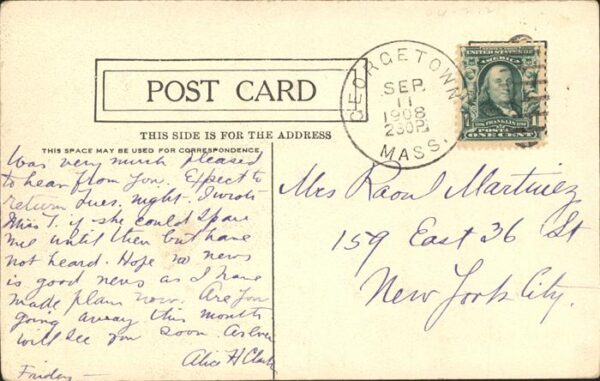 POST CARD
THIS SIDE IS FOR THE ADDRESS
THIS SPACE MAY BE USED FOR CORRESPONDENCE.
GEORGETOWN
SEP.
11
1908
230P
MASS.
UNITED STATES OF
AMERICA
FRANKLIN
POSTAGE
ONE CENT
Was very much pleased
to hear from you. Expect to
return Tues. night. I wrote
Miss T. if she could spare
me until then but have
not heard. Hope no news
is good news as I have
made plans now. Are you
going away this month
will see you soon. As Ever
Alice H Clark
Friday –
Mrs Raoul Martinez
159 East 36 St
New York City.